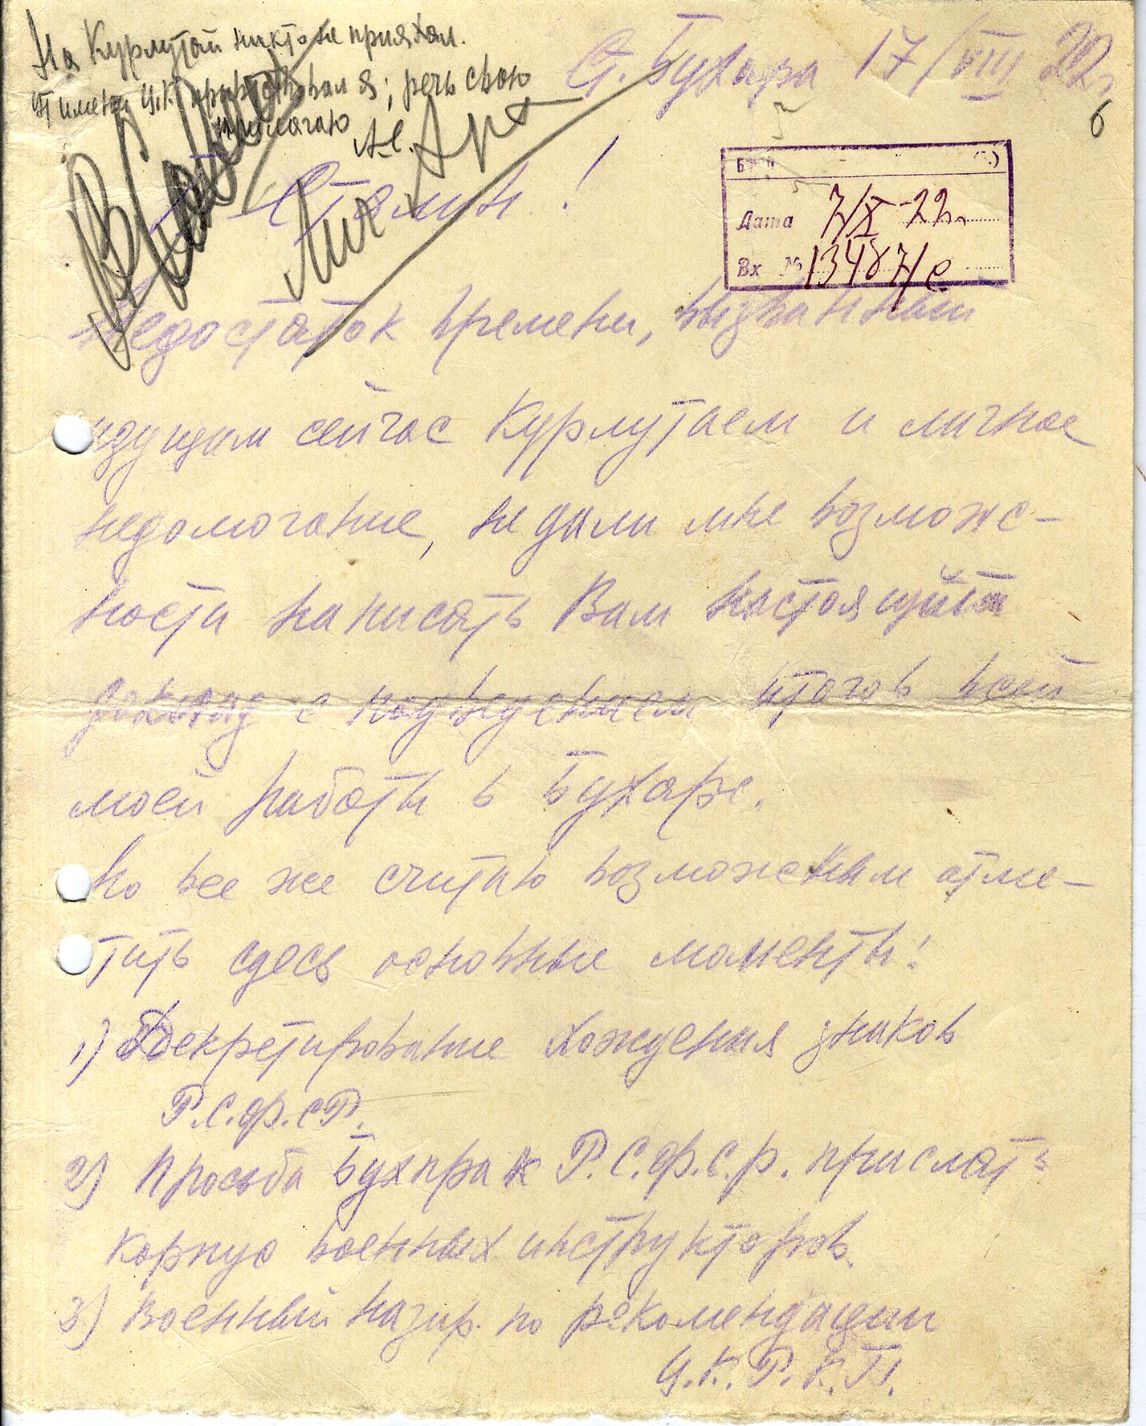 На Курлутай никто не приехал.
От имени ЦК приветствовал я; речь свою
прилагаю
Ст. Бухара 17/VIII 22 г.
6
Т. Сталин!
Лич Арх
Дата 7/X-22 г.
Вх № 13487/с
Недостаток времени, вызванный
идущим сейчас Курлутаем и личное
недомогание, не дали мне возмож-
ности написать Вам настоящий
доклад с подведением итогов всей
моей работы в Бухаре.
Но все же считаю возможным отме-
тить здесь основные моменты:
1) Декретирование хождения знаков
Р.С.Ф.С.Р.
2) Просьба Бухпра к Р.С.Ф.С.Р. прислать
корпус военных инструкторов.
3) Военный назир. по рекомендации
Ц.К.Р.К.П.